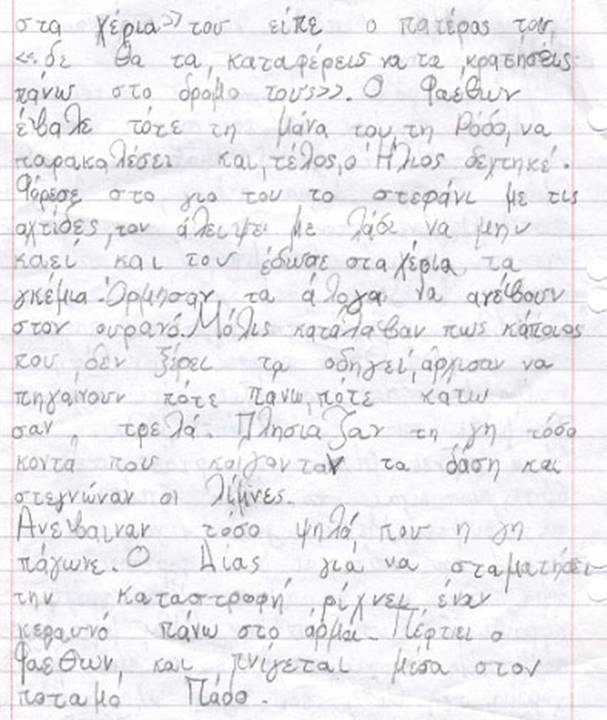 στα χέρια>> του είπε ο πατέρας του,
<<δε θα τα, καταφέρεις να τα κρατήσεις
πάνω στο δρόμο τους>>. Ο Φαέθων
έβαλε τότε τη μάνα του, τη Ρόδο, να
παρακαλέσει και, τέλος, ο Ήλιος δέχτηκέ.
Φόρεσε στο γιο του το στεφάνι με τις
αχτίδες, τον άλειψε με λάδι να μην
καεί και του έδωσε στα χέρια τα
γκέμια. Όρμησαν τα άλογα να ανέβουν
στον ουρανό. Μόλις κατάλαβαν πως κάποιος
που δεν ξέρει τα οδηγεί, άρχισαν να
πηγαίνουν πότε πάνω, πότε κατω
σαν τρελά. Πλησιαζαν τη γη τόσο
κοντά που καίγονταν τα δάση και
στεγνώναν οι λίμνες.
Ανέβαιναν τόσο ψηλά που η γη
πάγωνε. Ο Δίας για να σταματήσει
την καταστροφή ρίχνει έναν
κεραυνό πάνω στο άρμα. Πέφτει ο
Φαέθων, και πνίγεται μέσα στον
ποταμο Πάδο.